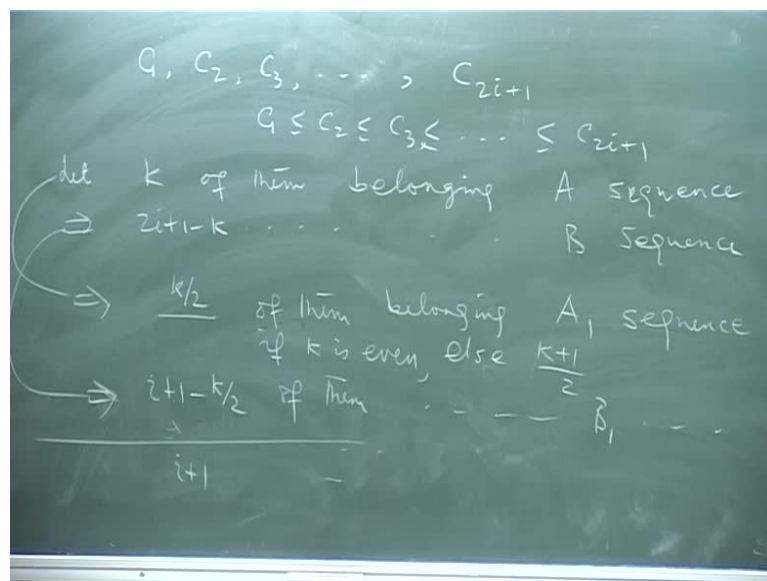 C1, C2, C3, ... , C2i+1
C1 ≤ C2 ≤ C3 ≤ ... ≤ C2i+1
Let k of them belonging A sequence
⇒ 2i+1-k . . . . . . . B sequence
⇒ k/2 of them belonging A1 sequence
if k is even, else (k+1)/2
⇒ i+1-k/2 of them . . . — B1 . . . .
i+1